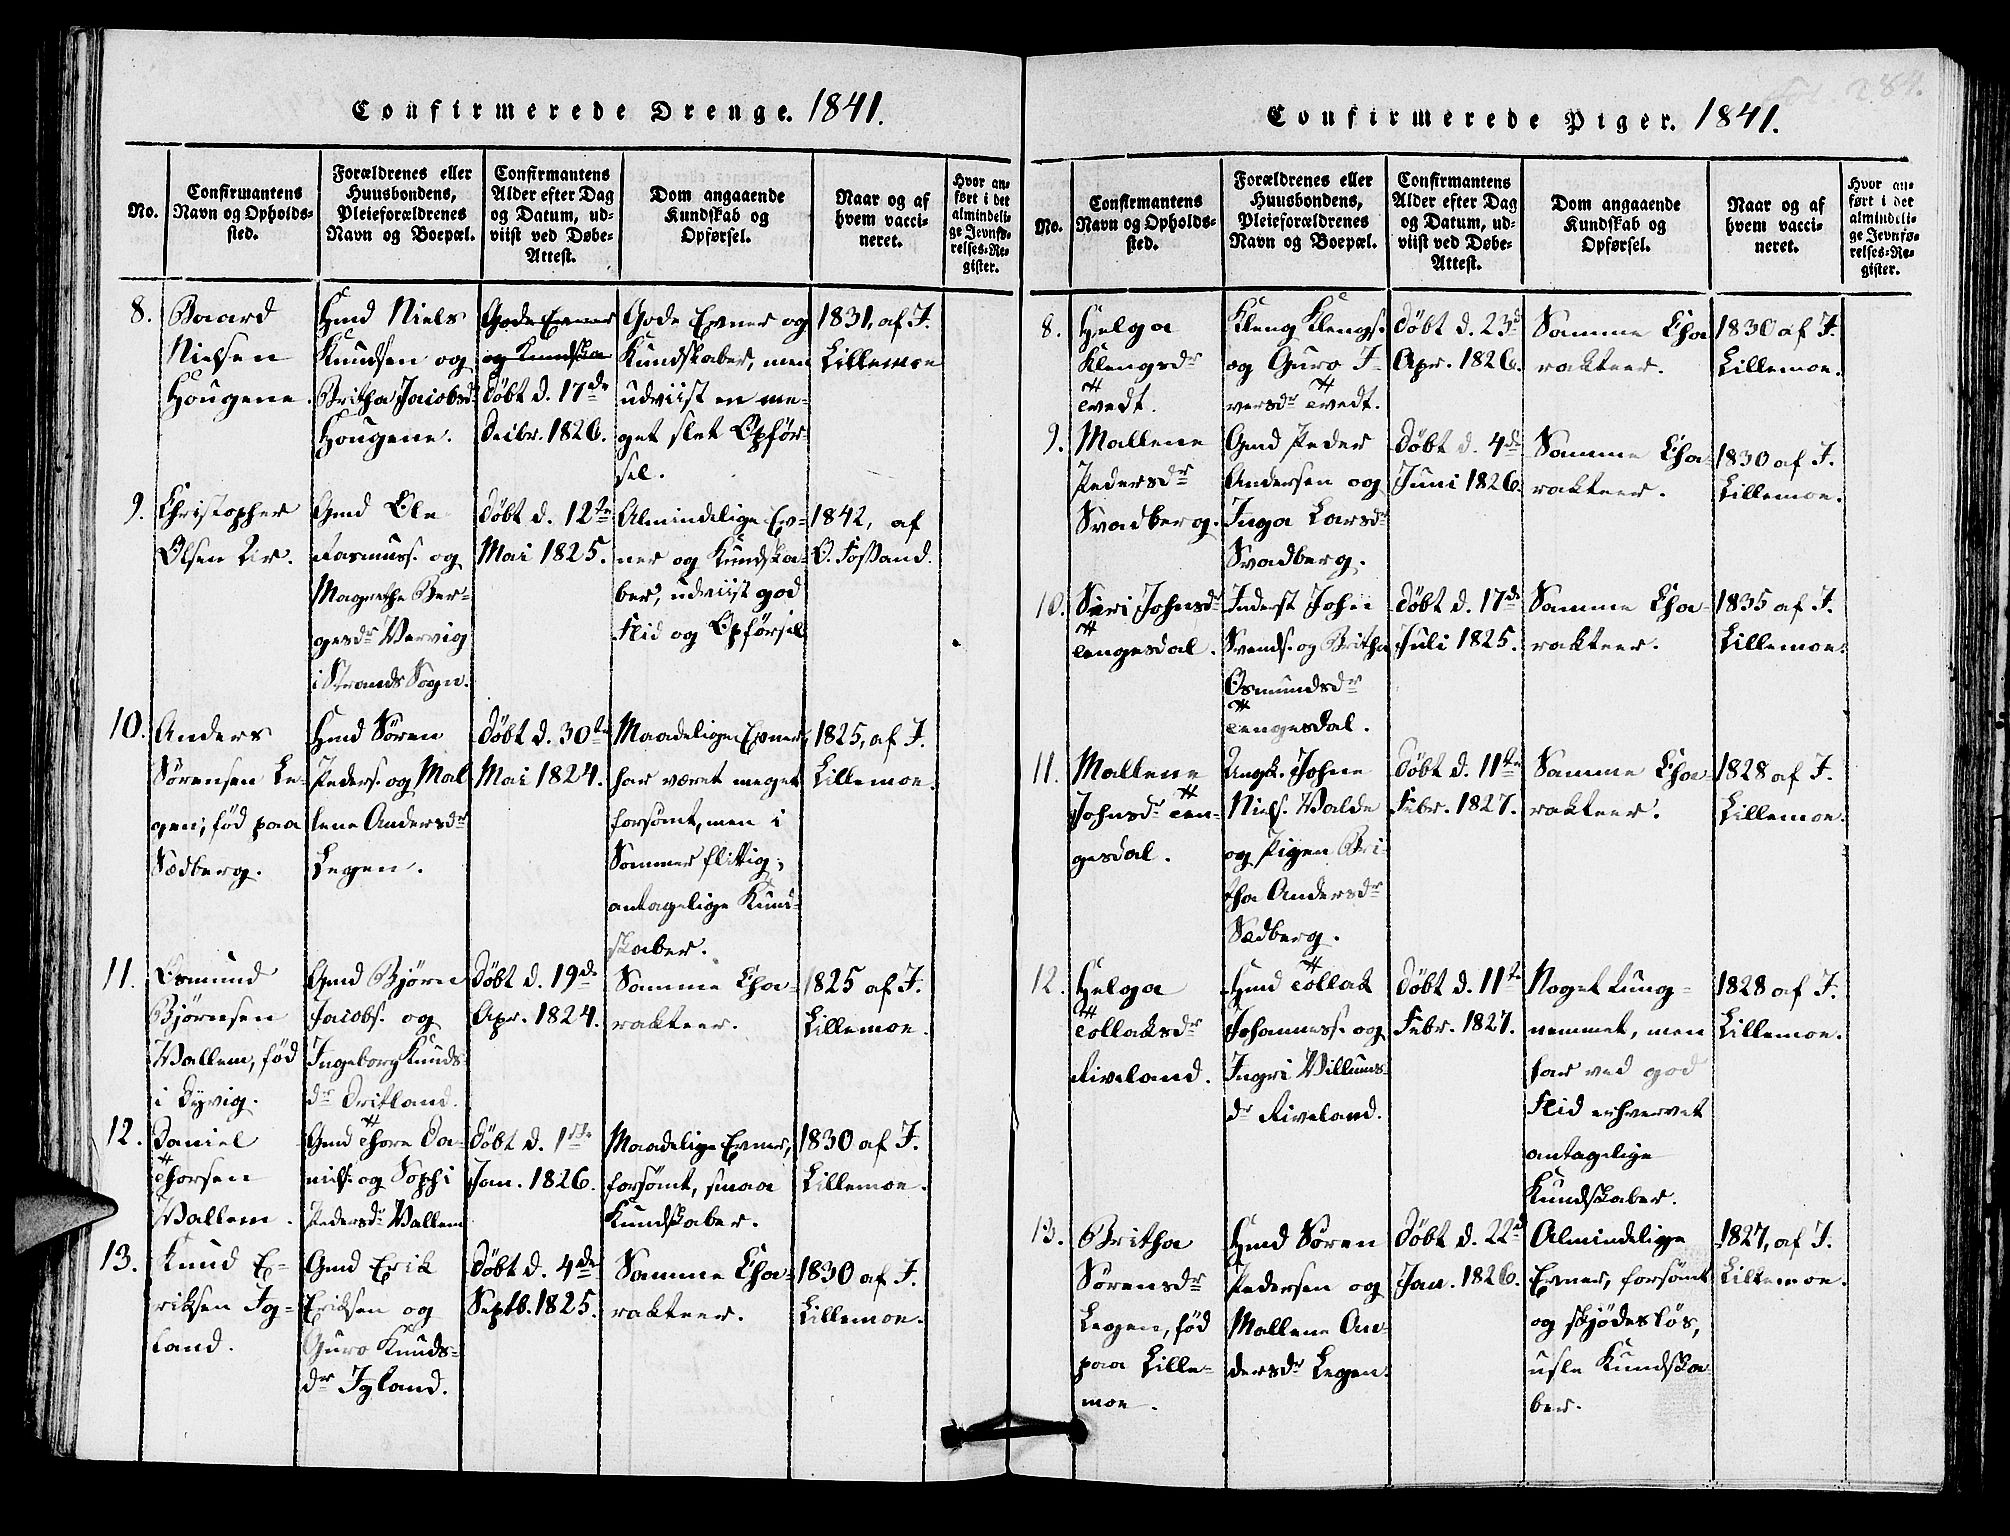 Confirmerede Drenge. 1841.
No.
Confirmantens
Navn og Opholds-
sted.
Forældrenes eller
Huusbondens,
Pleieforældrenes
Navn og Boepæl.
Confirmantens
Alder efter Dag
og Datum, ud-
viist ved Døbe-
Attest.
Dom angaaende
Kundskab og
Opførsel.
Naar og af
hvem vacci-
neret.
Hvor an-
ført i det
almindeli-
ge Jevnfø-
relses-Re-
gister.
8.
Baard
Nielsen
Hougene.
Hmd Niels
Knudsen og
Britha Jacobsdr
Hougene.
Gode Evner
og Kundska
Døbt d. 17de
Decbr. 1826.
Gode Evner og
Kundskaber, men
udviist en me-
get slet Opfør-
sel.
1831, af J.
Lillemoe
9.
Christopher
Olsen Lir.
Gmd Ole
Rasmuss. og
Magrethe Ber-
gesdr Wervig
i Strands Sogn.
Døbt d. 12te
Mai 1825.
Almindelige Ev-
ner og Kundska-
ber, udviist god
Flid og Opførsel
1842, af
O. Fossand.
10.
Anders
Sørensen Le-
gen; fød paa
Sædberg.
Hmd Søren
Peders. og Mal
lene Andersdr
Legen.
Døbt d. 30te
Mai 1824.
Maadelige Evner,
har været meget
forsømt, men i
Sommer flittig;
antagelige Kund-
skaber.
1825, af J.
Lillemoe.
11.
Osmund
Bjørnsen
Wallem, fød
i Dyvig.
Gmd Bjørn
Jacobs. og
Ingeborg Knuds-
dr Oritland.
Døbt d. 19de
Apr. 1824.
Samme Cha-
rakteer.
1825 af J.
Lillemoe.
12.
Daniel
Thorsen
Wallem.
Gmd Thore Da-
niels. og Sophi
Pedersdr Wallem
Døbt d. 1ste
Jan. 1826.
Maadelige Evner,
forsømt, smaa
Kundskaber.
1830 af J.
Lillemoe.
13.
Knud E-
riksen Ig-
land.
Gmd Erik
Eriksen og
Guro Knuds-
dr Igland.
Døbt d. 4de
Septb. 1825.
Samme Cha-
rakteer.
1830 af J.
Lillemoe.
284.
Confirmerede Piger. 1841.
No.
Confirmantens
Navn og Opholds-
sted.
Forældrenes eller
Huusbondens,
Pleieforældrenes
Navn og Boepæl.
Confirmantens
Alder efter Dag
og Datum, ud-
viist ved Døbe-
Attest.
Dom angaaende
Kundskab og
Opførsel.
Naar og af
hvem vacci-
neret.
Hvor an-
ført i det
almindeli-
ge Jevnfø-
relses-Re-
gister.
8.
Helga
Klengsdr
Tvedt.
Kleng Klengs.
og Guro I-
versdr Tvedt.
Døbt d. 23d
Apr. 1826.
Samme Cha
rakteer.
1830 af J.
Lillemoe.
9.
Mallene
Pedersdr
Svadberg.
Gmd Peder
Andersen og
Inga Larsdr
Svadberg.
Døbt d. 4de
Juni 1826.
Samme Cha-
rakteer.
1830 af J.
Lillemoe.
10.
Siri Johnsdr
Tengesdal.
Inderst John
Svends. og Britha
Osmundsdr
Tengesdal.
Døbt d. 17de
Juli 1825.
Samme Cha-
rakteer.
1835 af J.
Lillemoe.
11.
Mallene
Johnsdr Ten-
gesdal.
Ungk. Johne
Niels. Walde
og Pigen Bri-
tha Andersdr
Sædberg.
Døbt d. 11te
Febr. 1827.
Samme Cha
rakteer.
1828 af J.
Lillemoe.
12.
Helga
Tollaksdr
Riveland.
Hmd Tollak
Johanness. og
Ingri Villums-
dr Riveland.
Døbt d. 11te
Febr. 1827.
Noget tung-
nemmet, men
har ved god
Flid erhvervet
antagelige
Kundskaber.
1828 af J.
Lillemoe.
13.
Britha
Sørensdr
Legen, fød
paa Lille-
moe.
Hmd Søren
Pedersen og
Mallene An-
dersdr Legen.
Døbt d. 22d
Jan. 1826.
Almindelige
Evner, forsømt
og skjødesløs,
usle Kundska
ber.
1827, af J.
Lillemoe.